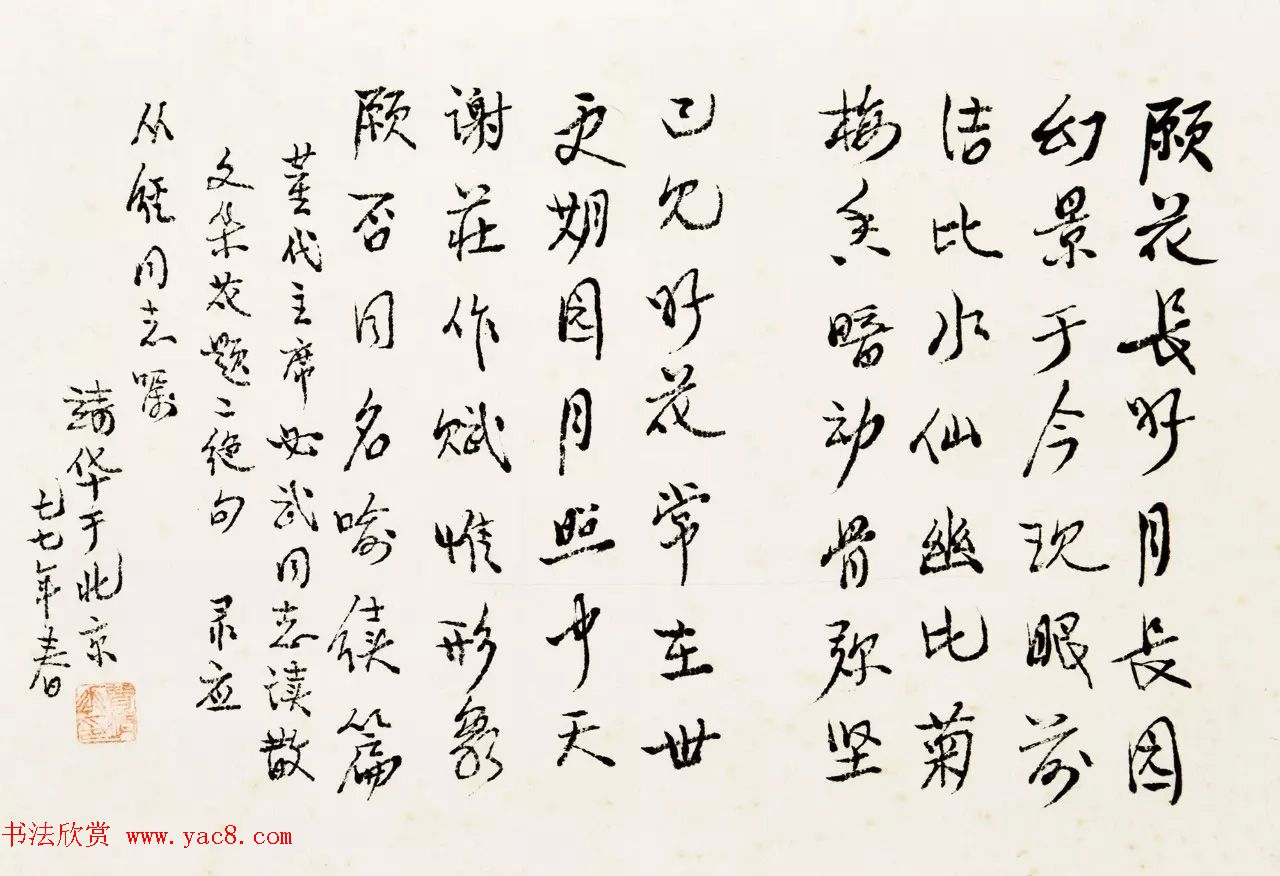 愿花长好月长圆
幻景于今现眼前
洁比水仙幽比菊
梅香暗动骨弥坚
已见好花常在世
更期圆月照中天
谢庄作赋惟形象
愿否同名喻续篇
董代主席必武同志读散
文集花题二绝句 录应
从经同志嘱
靖华于北京
七七年春
书法欣赏 www.yac8.com